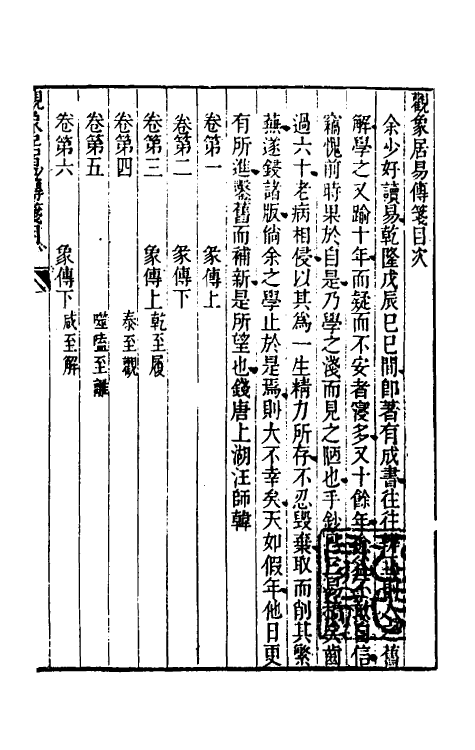 觀象居易傳箋目次
余少好讀易乾隆戊辰巳巳間卽著有成書往往舊
解學之又踰十年而疑而不安者寖多又十餘年自信
竊愧前時果於自是乃學之淺而見之陋也手鈔齒
過六十老病相侵以其爲一生精力所存不忍毀棄取而創其繁
蕪遂鋟諸版倘余之學止於是焉則大不幸矣天如假年他日更
有所進鑿舊而補新是所望也錢唐上湖汪師韓
卷第一 彖傳上
卷第二 彖傳下
卷第三 象傳上乾至履
卷第四 泰至觀
卷第五 噬嗑至離
卷第六 象傳下咸至解
觀象居易傳箋目